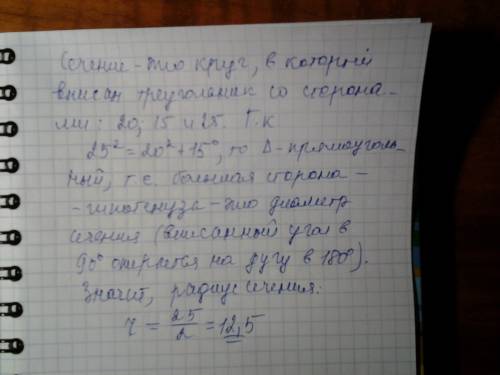 Сечение – это круг, в который
вписан треугольник со сторона-
ми: 20; 15 и 25. Т.к
25² = 20² + 15², то Δ - прямоуголь-
ный, т.е. большая сторона -
- гипотенуза - это диаметр
сечения (вписанный угол в
90° опирается на дугу в 180°).
Значит, радиус сечения:
r = 25/2 = 12,5